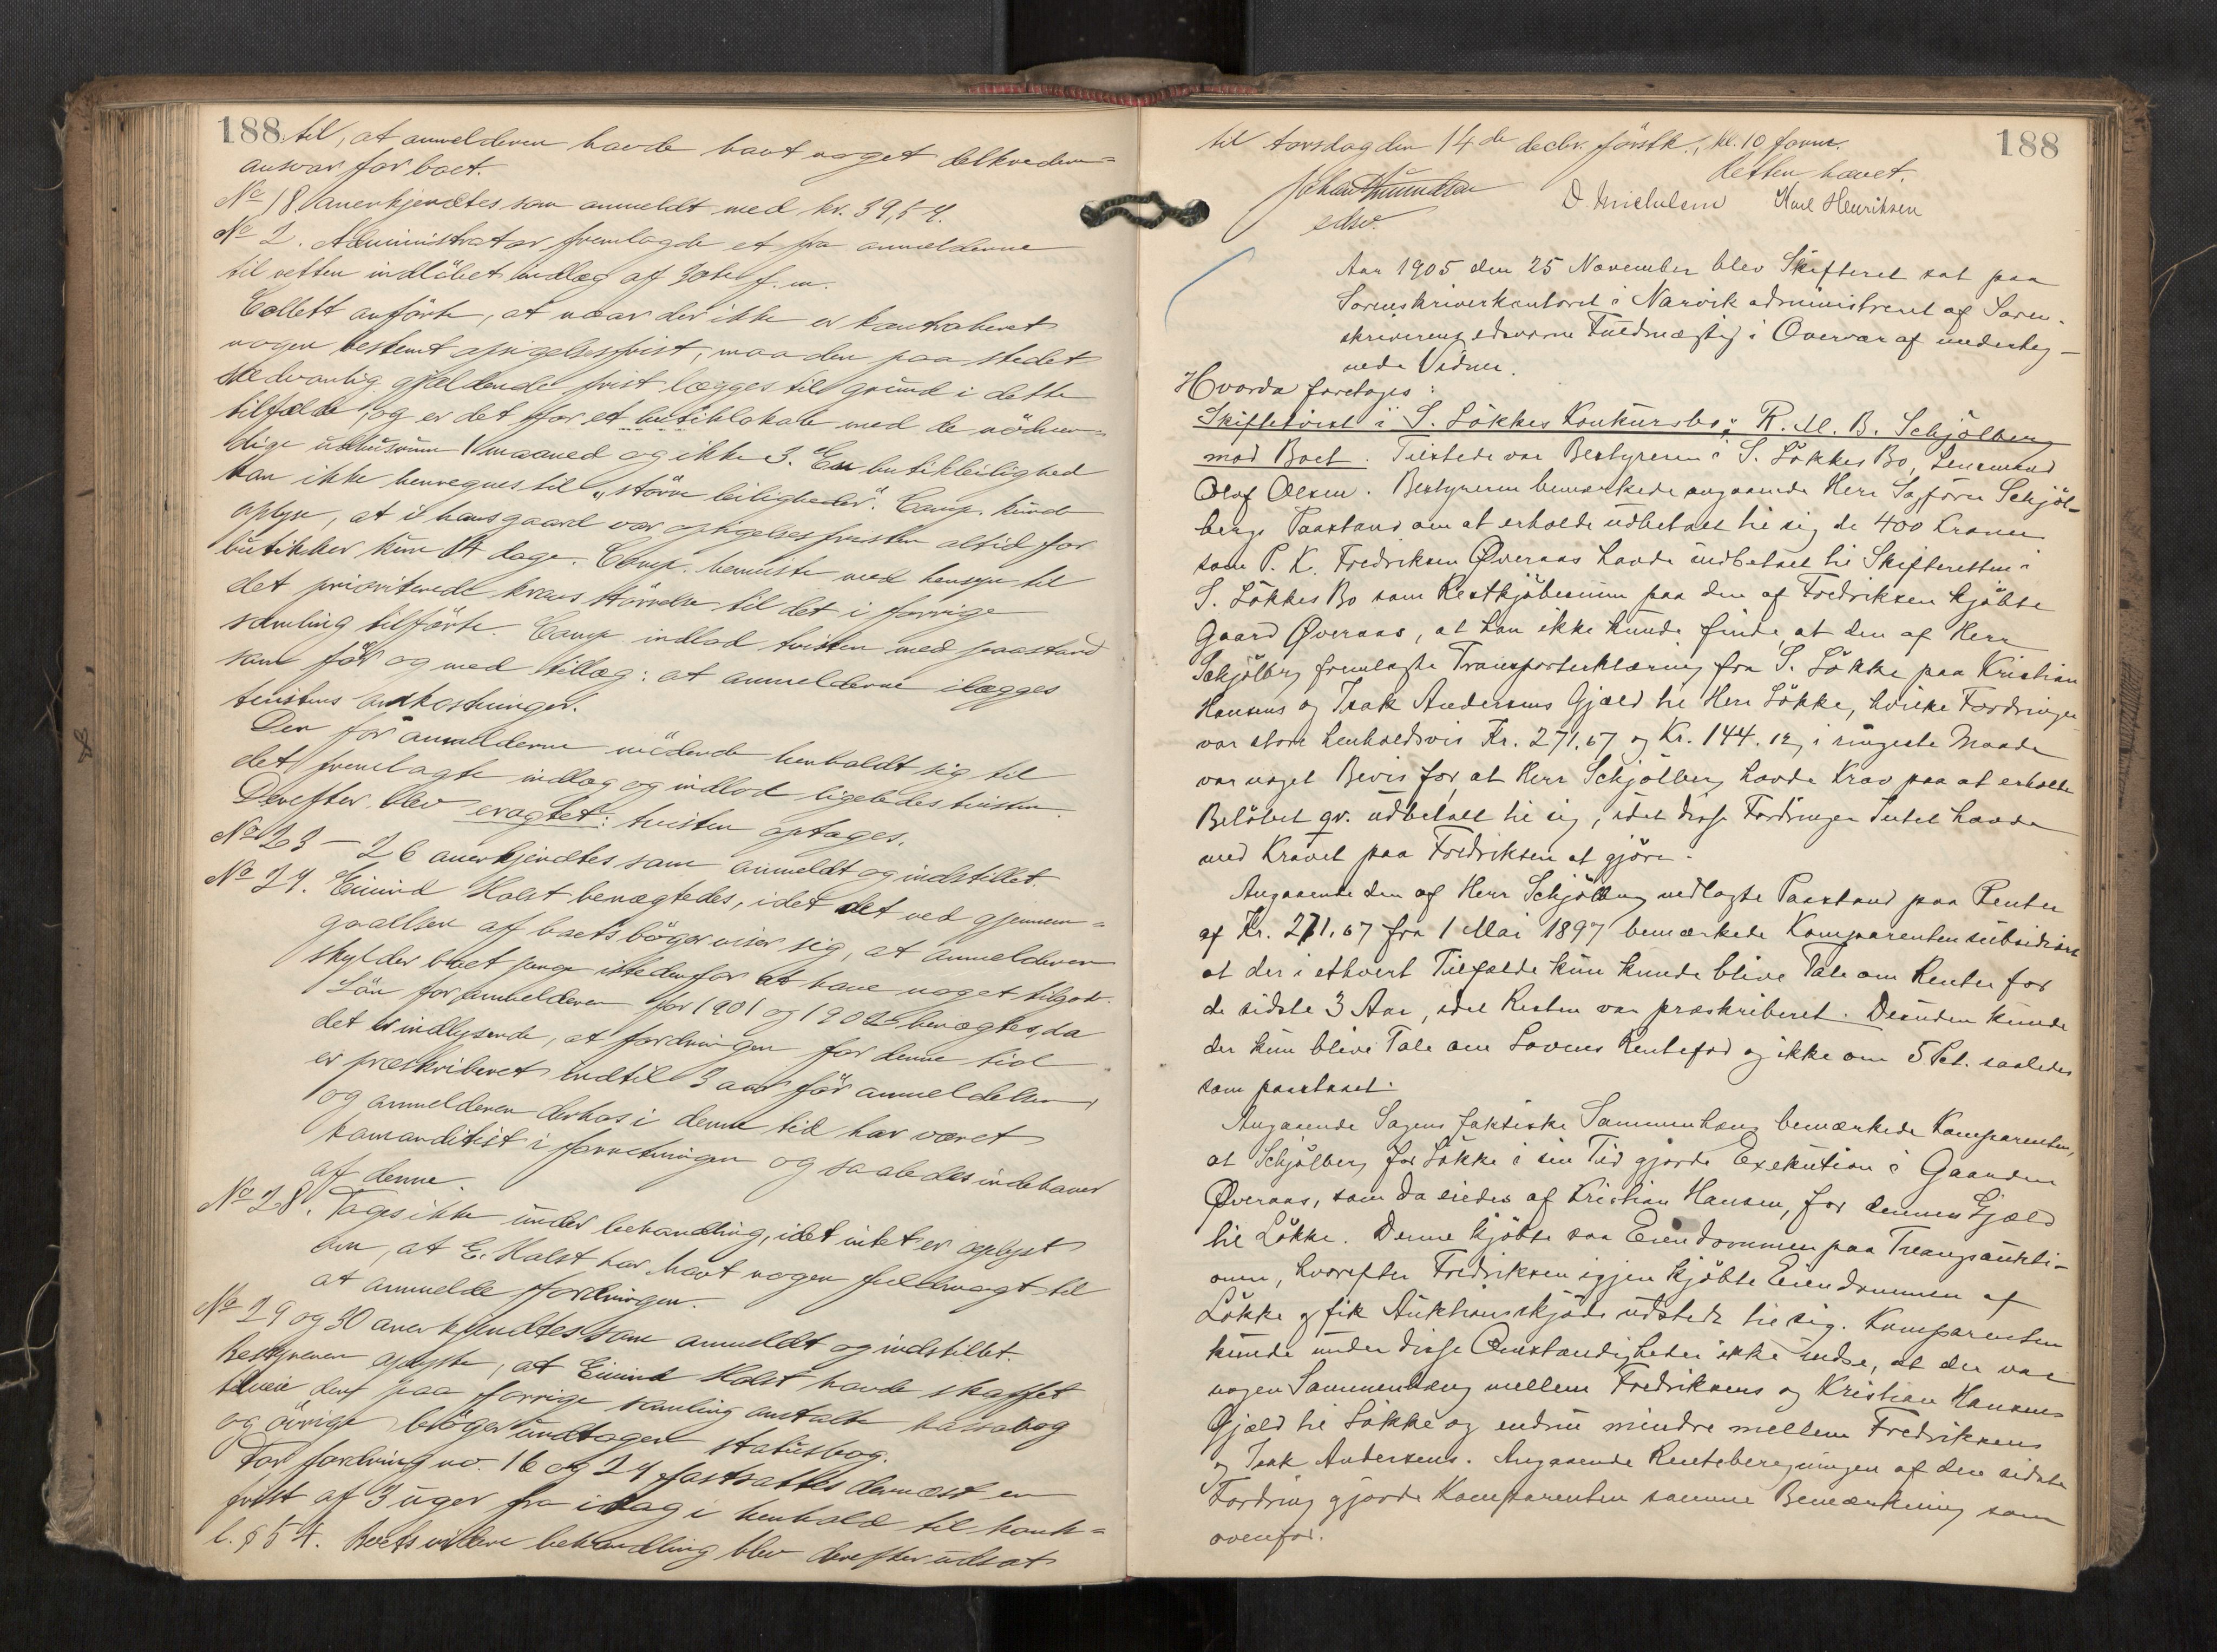 188 til, at anmelderen havde havt noget delkredere=
ansvar for boet.
No 18 anerkjendtes som anmeldt med kr. 39,54.
No 2. Administrator fremlagde et fra anmelderne
til retten indløbet indlæg af 30te f. m.
Collett anførte, at naar der ikke er kontraheret
nogen bestemt opsigelsesfrist, maa den paa stedet
sedvanlig gjældende frist lægges til grund i dette
tilfælde, og er det for et butiklokale med de nødven=
dige udhusrum 1 maaned og ikke 3. En butikleilighed
kan ikke henregnes til "større leiligheder". Comp. kunde
oplyse, at i hans gaard var opsigelsesfristen altid for
butikker kun 14 dage. Comp. henviste med hensyn til
det prioriterede kravs størrelse til det i forrige
samling tilførte. Comp. indlod tvisten med paastand
som før og med tillæg: at anmelderne ilægges
tvistens omkostninger.
Den for anmelderne mødende henholdt sig til
det fremlagte indlæg og indlod ligeledes tvisten.
Derefter blev eragtet: tvisten optages.
No 23 – 26 anerkjendtes som anmeldt og indstillet.
No 24. Eivind Holst benægtedes, idet det ved gjennem=
gaaelsen af boets bøger viser sig, at anmelderen
skylder boet penge istedenfor at have noget tilgode.
Løn for anmelderen for 1901 og 1902 benægtes, da
det er indlysende, at fordringen for denne tid
er præskriberet indtil 3 aar før anmeldelsen,
og anmelderen derhos i denne tid har været
komanditist i forretningen og saaledes indehaver
af denne.
No 28. Tages ikke under behandling, idet intet er oplyst
om, at E. Holst har havt nogen fuldmagt til
at anmelde fordringen.
No 29 og 30 anerkjendtes som anmeldt og indstillet.
Bestyreren oplyste, at Eivind Holst havde skaffet
tilveie den paa forrige samling omtalte kassabog
og øvrige bøger undtagen statusbog.
For fordring no. 16 og 24 fastsattes dernæst en
frist af 3 uger fra idag i henhold til konk=
l. § 54. Boets videre behandling blev derefter udsat
188
til torsdag den 14de decbr. førstk., kl. 10 form.
Retten hævet.
Johan Amundsen
edsv.
O Michelsen Karl Henriksen
Aar 1905 den 25 November blev Skifteret sat paa
Sorenskriverkontoret i Narvik administreret af Soren-
skriverens edsvorne Fuldmægtig i Overvær af underteg-
nede Vidner.
Hvorda foretoges:
Skiftetvist i S. Løkkes Konkursbo: R. M. B. Schjølberg
mod Boet. Tilstede var Bestyreren i S. Løkkes Bo, Lensmand
Olof Olsen. Bestyreren bemærkede angaaende Herr Sagfører Schjøl-
bergs Paastand om at erholde udbetalt til sig de 400 Kroner
som P. K. Fredriksen Øveraas havde indbetalt til Skifteretten i
S. Løkkes Bo som Restkjøbesum paa den af Fredriksen kjøbte
Gaard Øveraas, at han ikke kunde finde, at den af Herr
Schjølberg fremlagte Transporterklæring fra S. Løkke paa Kristian
Hansens og Isak Andersens Gjæld til Herr Løkke, hvilke Fordringer
var store henholdsvis Kr. 271.67 og Kr. 144.12, i ringeste Maade
var noget Bevis for, at Herr Schjølberg havde Krav paa at erholde
Beløbet qv. udbetalt til sig, idet disse Fordringer Intet havde
med Kravet paa Fredriksen at gjøre.
Angaaende den af Herr Schjølberg nedlagte Paastand paa Renter
af Kr. 271.67 fra 1 Mai 1897 bemærkede Komparenten subsidiært
at der i ethvert Tilfælde kun kunde blive Tale om Renter for
de sidste 3 Aar, idet Resten var præskriberet. Desuden kunde
der kun blive Tale om Lovens Rentefod og ikke om 5 Pct. saaledes
som paastaaet.
Angaaende Sagens faktiske Sammenhæng bemærkede Komparenten,
at Schjølberg for Løkke i sin Tid gjorde Exekution i Gaarden
Øveraas, som da eiedes af Kristian Hansen, for dennes Gjæld
til Løkke. Denne kjøbte saa Eiendommen paa Tvangsaukti-
onen, hvorefter Fredriksen igjen kjøbte Eiendommen af
Løkke og fik Auktionsskjøde udstedt til sig. Komparenten
kunde under disse Omstændigheder ikke indse, at der var
nogen Sammenhæng mellem Fredriksens og Kristian Hansens
Gjæld til Løkke og endnu mindre mellem Fredriksens
og Isak Andersens. Angaaende Renteberegningen af den sidste
Fordring gjorde Komparenten samme Bemærkning som
ovenfor.